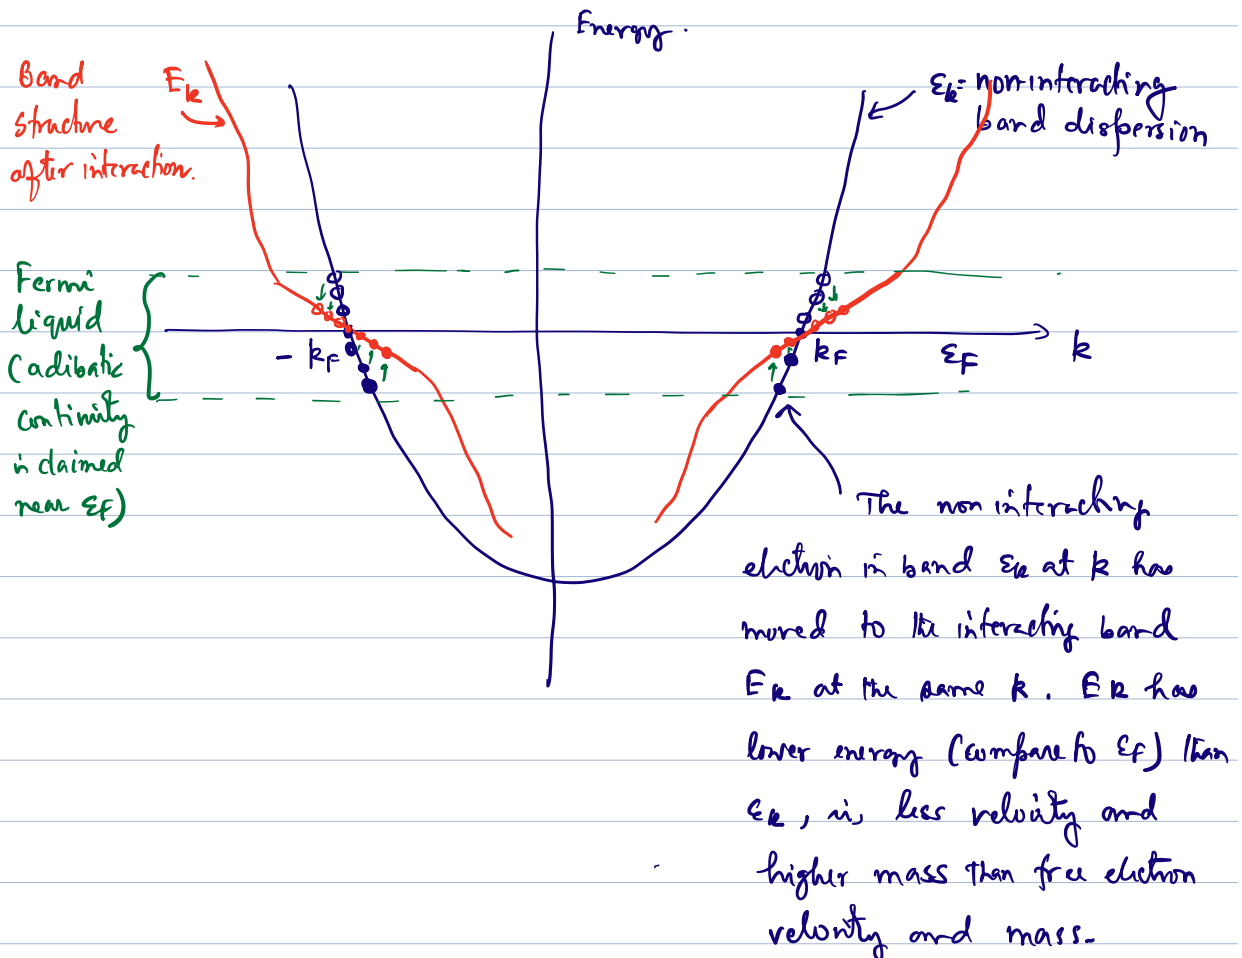 Energy.
Band
structure
after interaction.
E_k
ε_k = non-interacting
band dispersion
Fermi
liquid
(adibatic
continuity
is claimed
near ε_F)
- k_F
k_F
ε_F
k
The non interacting
electron in band ε_k at k has
moved to the interacting band
E_k at the same k. E_k has
lower energy (compare to ε_F) than
ε_k, ie, less velocity and
higher mass than free electron
velocity and mass.